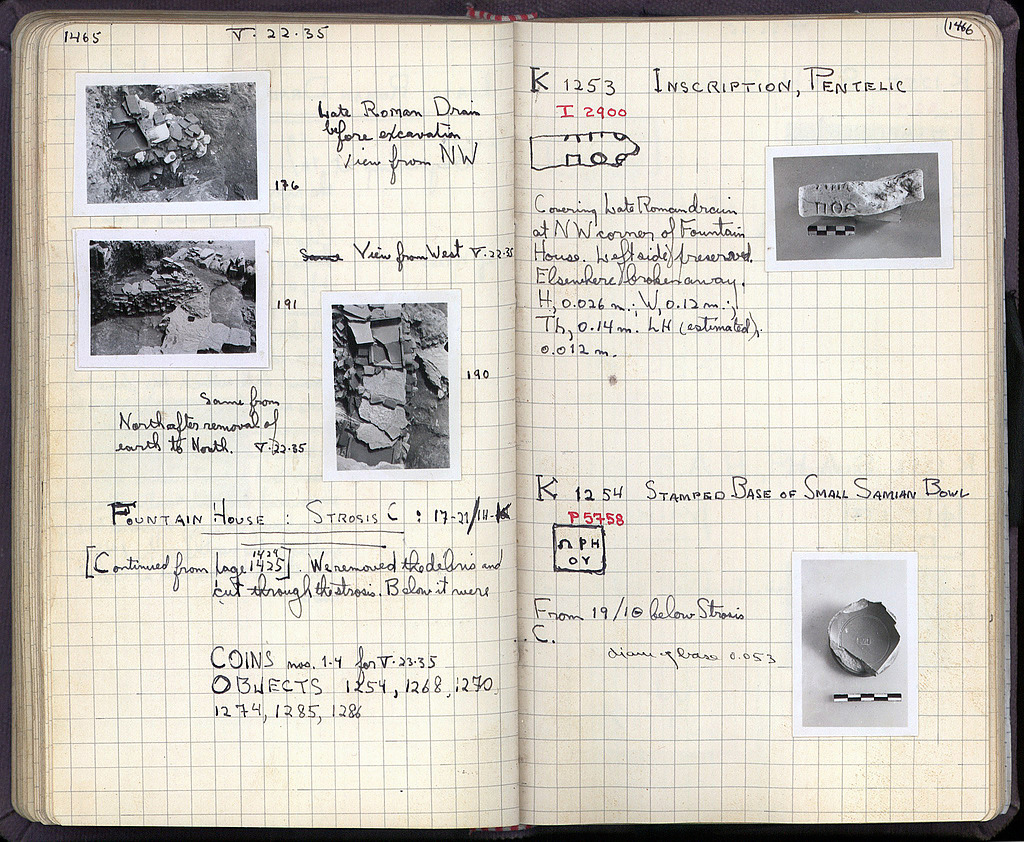 1465
V. 22.35
Late Roman Drain
before excavation
View from NW
176
Same View from West V.22.35
191
190
Same from
North after removal of
earth to North. V.22.35
FOUNTAIN HOUSE : STROSIS C : 17-21/
[Continued from page 1425]. We removed the debris and
1424
cut through the strosis. Below it were
COINS nos. 1-4 for V.23.35
OBJECTS 1254, 1268, 1270,
1274, 1285, 1286
1466
K 1253 INSCRIPTION, PENTELIC
I 2900
ΠΟΘ
Covering Late Roman drain
at NW corner of Fountain
House. Left side preserved.
Elsewhere broken away.
H, 0.026 m.; W, 0.12 m.;
Th, 0.14 m. LH (estimated),
0.012 m.
K 1254 STAMPED BASE OF SMALL SAMIAN BOWL
P 5758
PH
OY
From 19/10 below Strosis
C.
diam of base 0.053